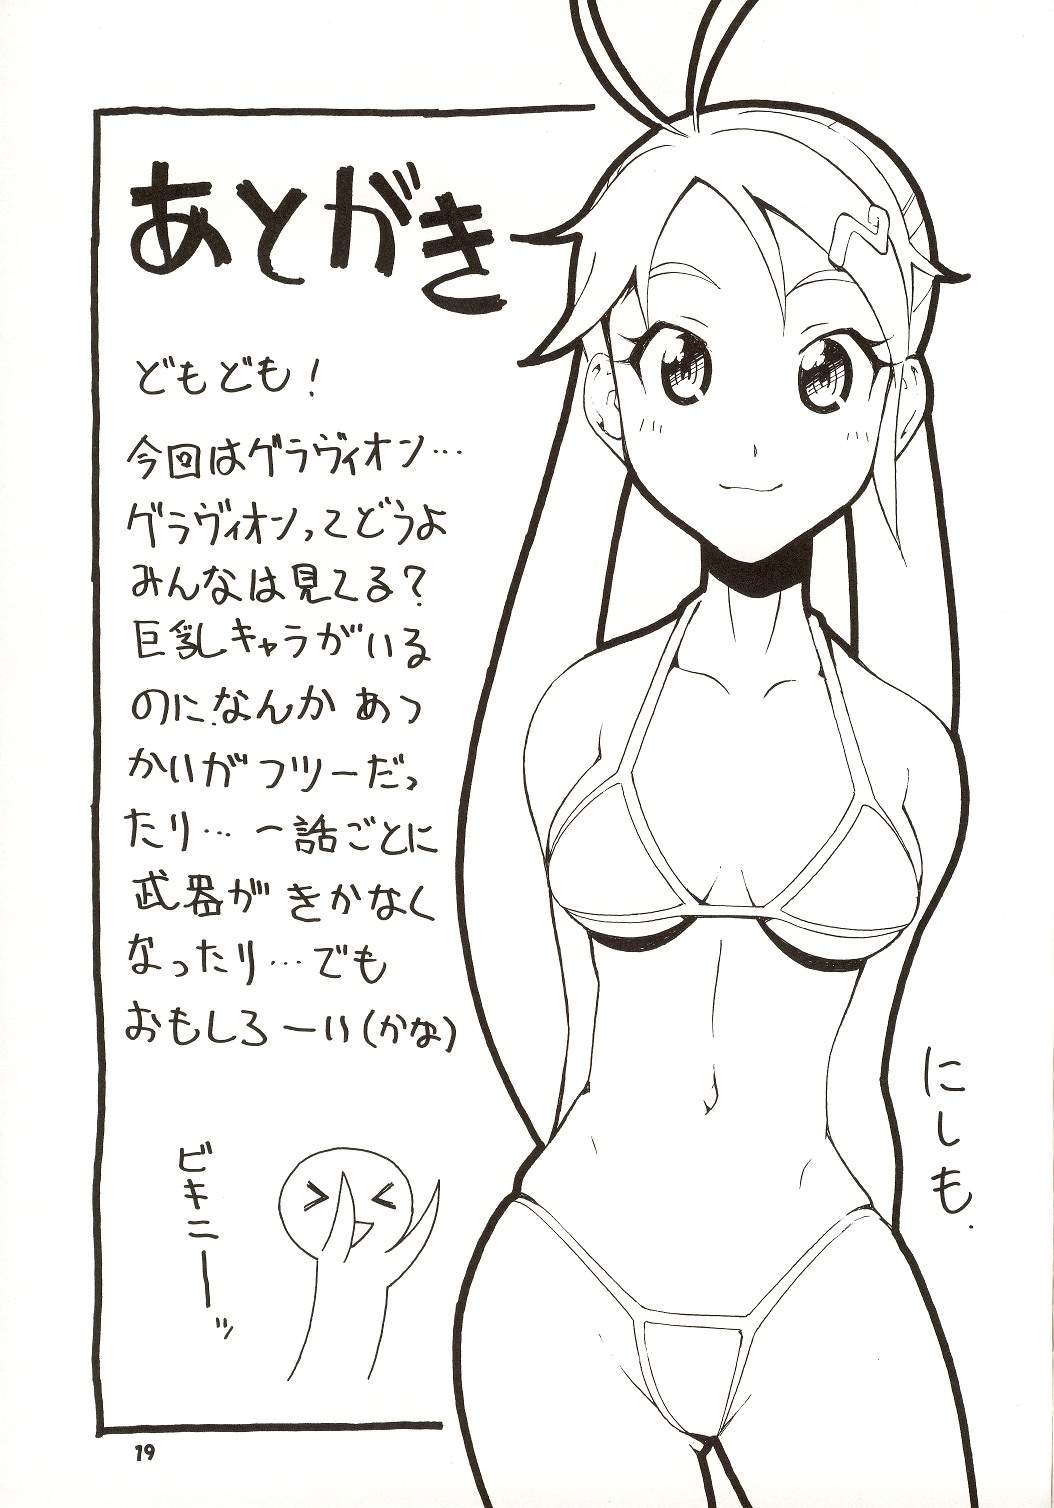 あとがき
どもども!
今回はグラヴィオン…
グラヴィオンってどうよ
みんなは見てる?
巨乳キャラがいる
のになんかあっ
かいがフツーだっ
たり…一話ごとに
武器がきかなく
なったり…でも
おもしろーい(かな)
ビキニーッ
にしも.
19